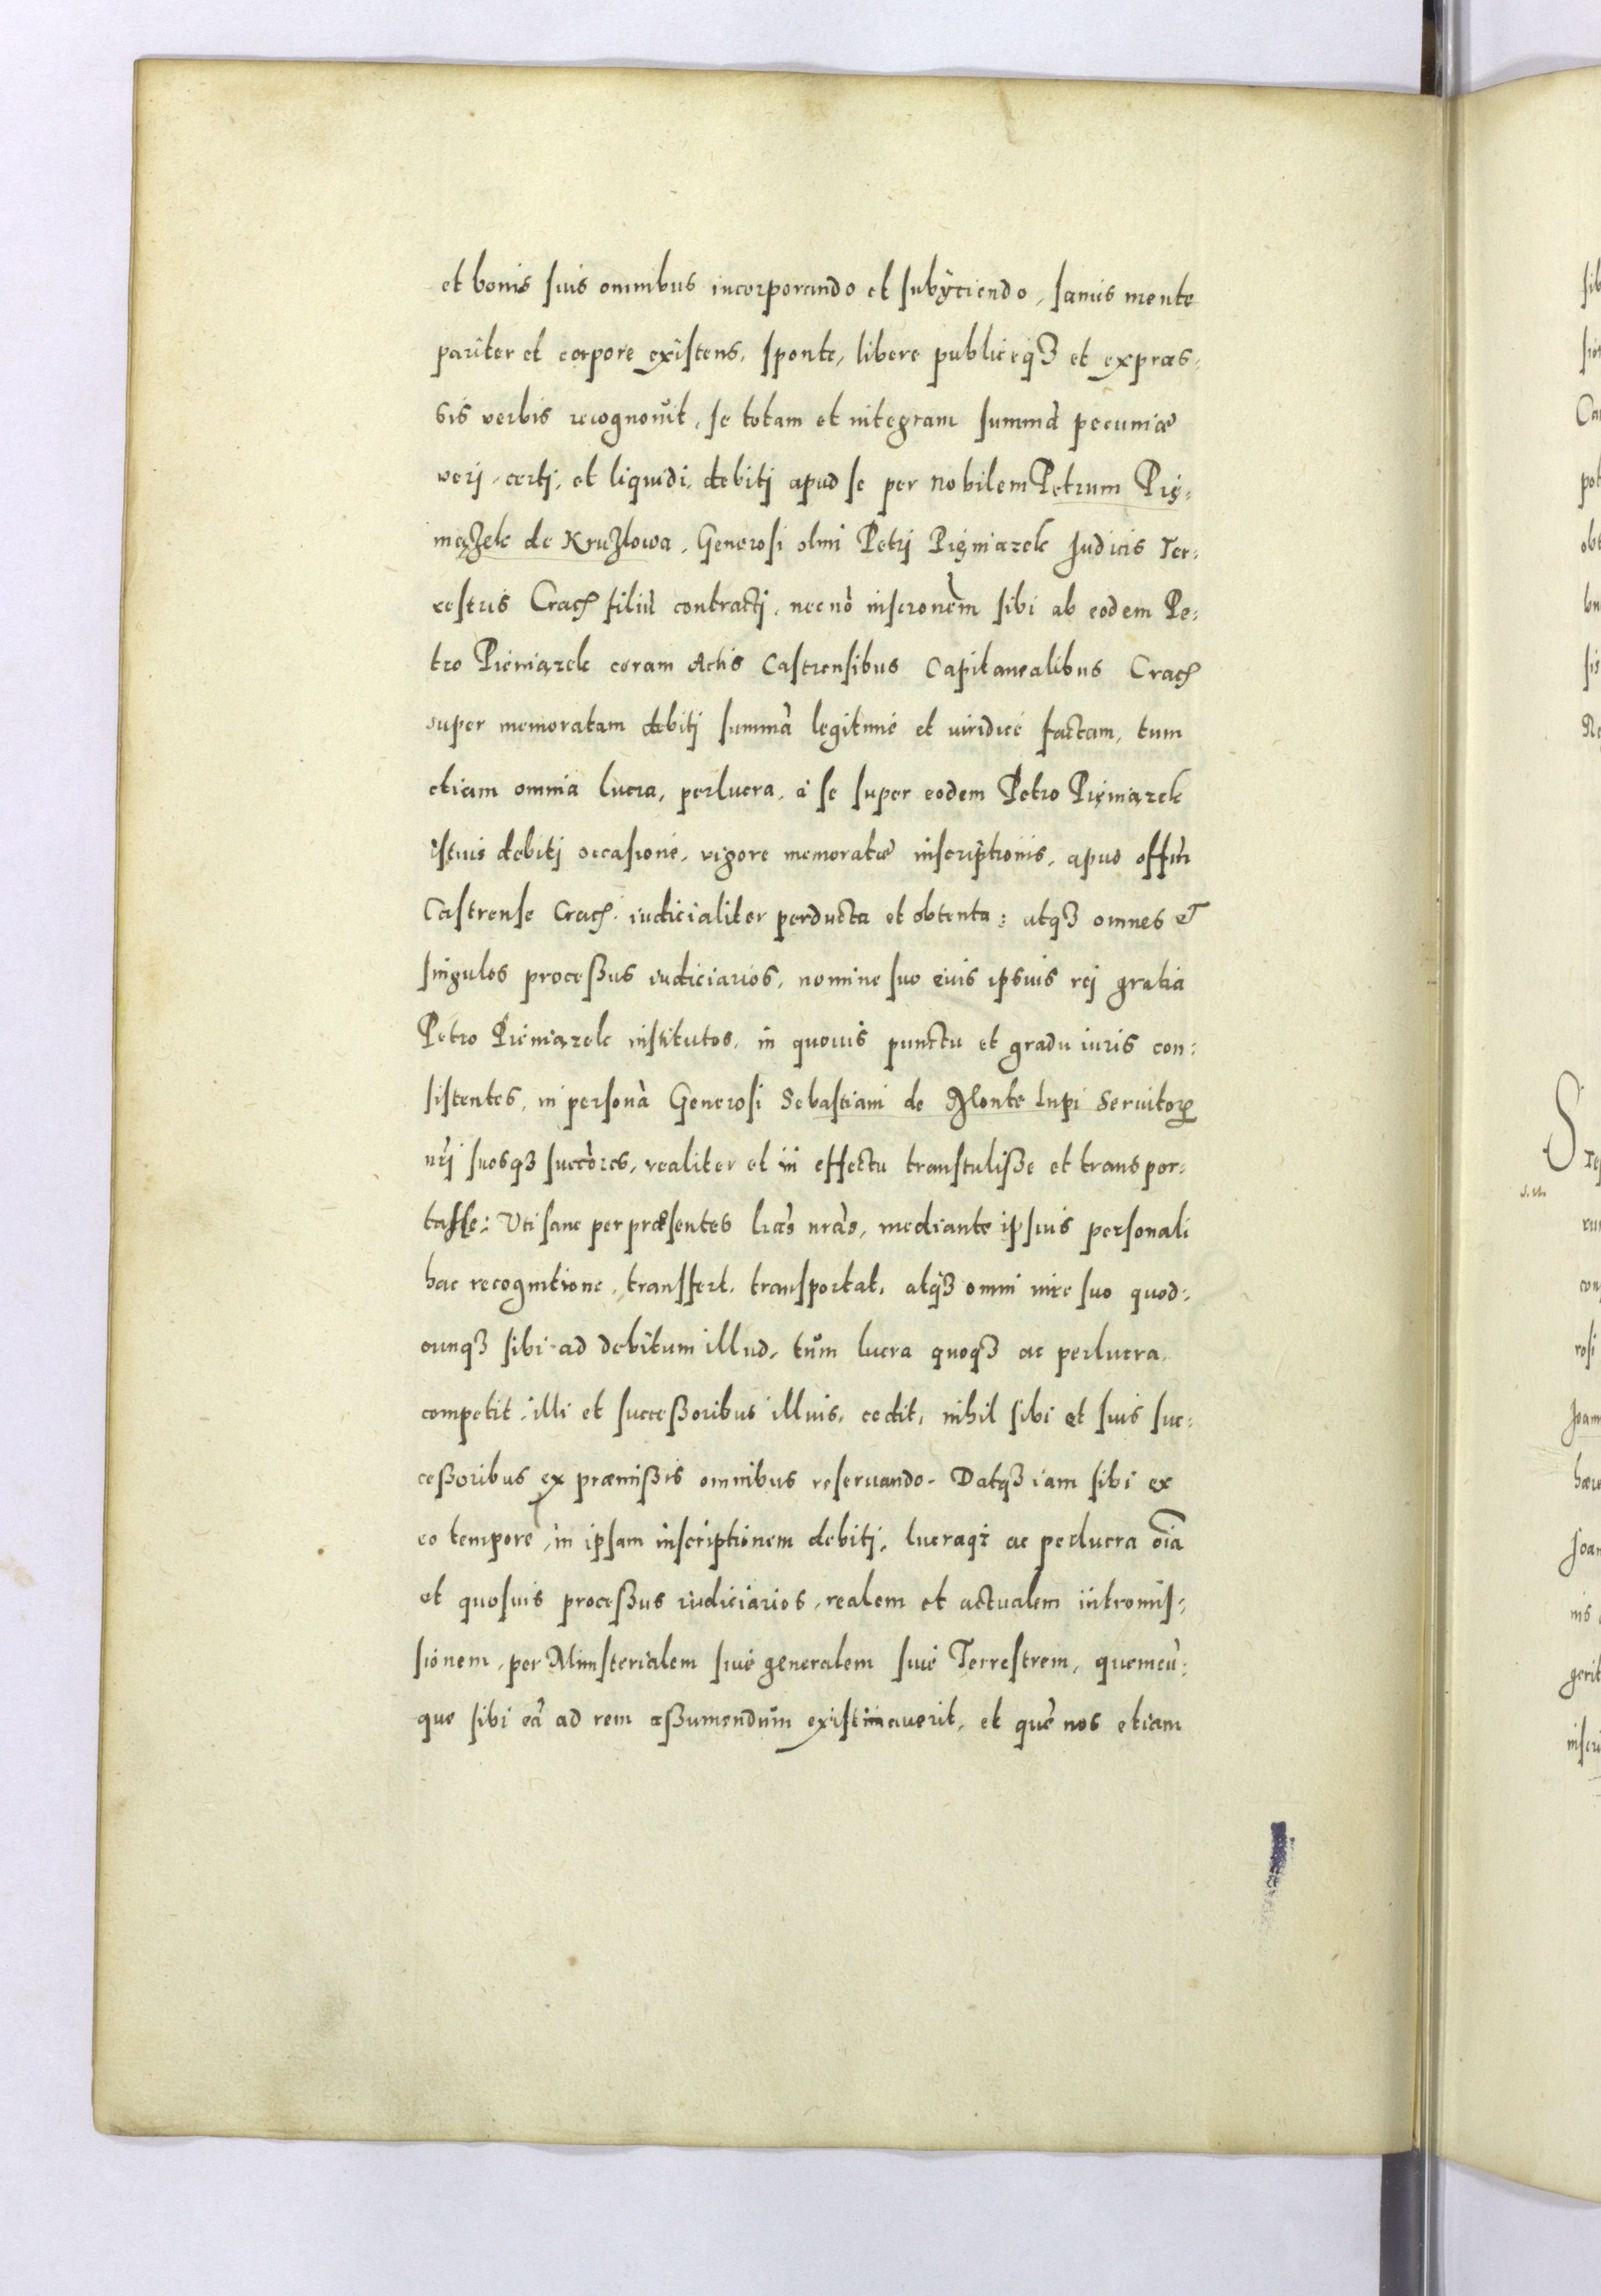 et bonis suis omnibus incorporando et subÿciendo, sanus mente
pariter et corpore existens, sponte, libere publiceqꝫ et expræs-
sis verbis recognouit, se totam et integram summã pecuniæ
verj, certj, et liquidi, debitj apud se per nobilem Petrum Pię-
niążek de Kruzlowa, Generosi olim Petrj Pięniązek Judicis Ter-
restris Crac̃ filiũ contractj, necnõ inscronem̃ sibi ab eodem Pe-
tro Pieniązek coram Actis Castrensibus Capitanealibus Crac̃
super memoratam debitj summã legitimè et viridicè factam, tum
etiam omnia lucra, perlucra, à se super eodem Petro Pięniązek
istius debitj occasione, vigore memoratæ inscriptionis, apud offim̃
Castrense Crac̃. iudicialiter perducta et obtenta: atqꝫ omnes et
singulos proceßus iudiciarios, nomine suo eius ipsius rej gratia
Petro Pieniązek institutos, in quouis punctu et gradu iuris con-
sistentes, in personã Generosi Sebastiani de Monte Lupi Seruitor
nr̃j suosqꝫ succores̃, realiter et in effectu transtuliße et transpor-
tasse: Vti sane per præsentes lr̃as nr̃as, mediante ipsius personali
hac recognitione, transfert, transportat, atqꝫ omni iure suo quod-
cunqꝫ sibi ad debitum illud, tùm lucra quoqꝫ ac perlucra,
competit, illi et succeßoribus illius, cedit, nihil sibi et suis suc-
ceßoribus ex præmißis omnibus reseruando. Datqꝫ iam sibi ex
eo tempore, in ipsam inscriptionem debitj, lucraqꝫ ac perlucra oĩa
et quosuis proceßus iudiciarios, realem et actualem intromis-
sionem, per Ministerialem siue generalem siue Terrestrem, quemcũ-
que sibi eã ad rem aßumendum existimauerit, et quẽ nos etiam